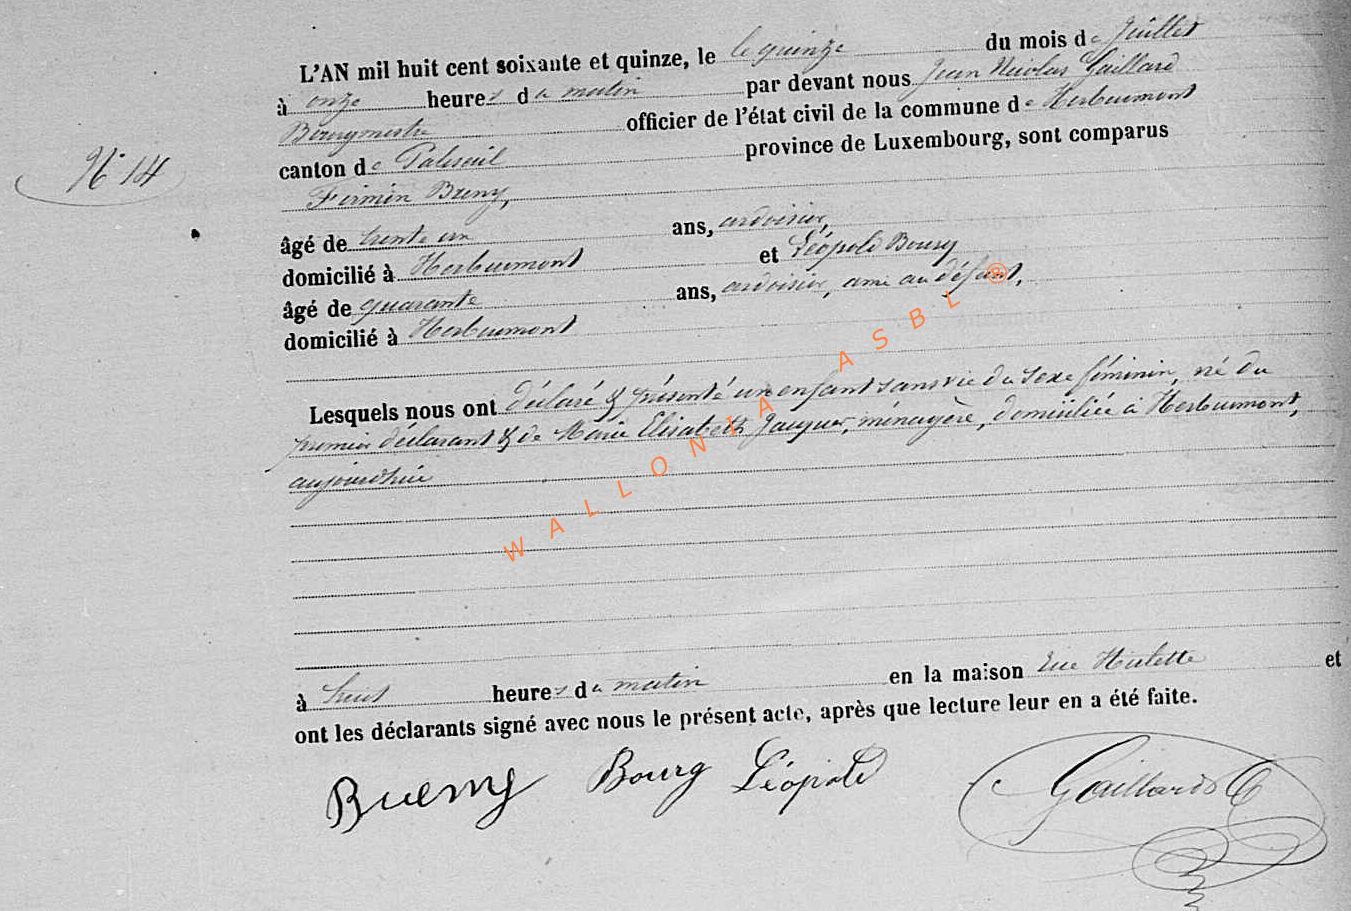 L'AN mil huit cent soixante et quinze, le le quinze du mois de Juillet
à onze heures du matin par devant nous Jean Nicolas Gaillard
Bourgmestre officier de l'état civil de la commune de Herbeumont
canton de Paliseul province de Luxembourg, sont comparus
N° 14
Firmin Bremy,
âgé de trente un ans, ardoisier,
domicilié à Herbeumont et Léopold Bourg
âgé de quarante ans, ardoisier, ami au défunt,
domicilié à Herbeumont
Lesquels nous ont déclaré & présenté un enfant sans vie du sexe féminin, né du
premier déclarant & de Marie Elisabeth Jacques, ménagère, domiciliée à Herbeumont,
aujourd'hui
à huit heures du matin en la maison rue Hulette et
ont les déclarants signé avec nous le présent acte, après que lecture leur en a été faite.
Bourg Léopold Gaillard
WALLONIA ASBL ®